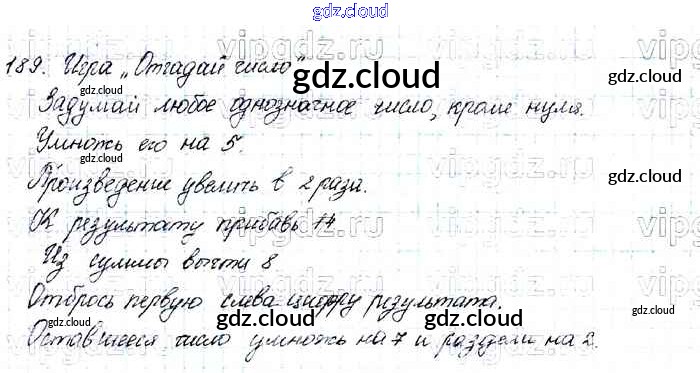 gdz.cloud
gdz.cloud
189. Игра „Отгадай число"
gdz.cloud
gdz.cloud
gdz.cloud
Задумай любое однозначное число, кроме нуля.
Умножь его на 5.
gdz.cloud
Произведение увеличь в 2 раза.
gdz.cloud
К результату прибавь 14
Из суммы вычти 8
gdz.cloud
gdz.cloud
Отбрось первую слева цифру результата.
gdz.cloud
gdz.cloud
Оставшееся число умножь на 7 и раздели на 2.
gdz.cloud